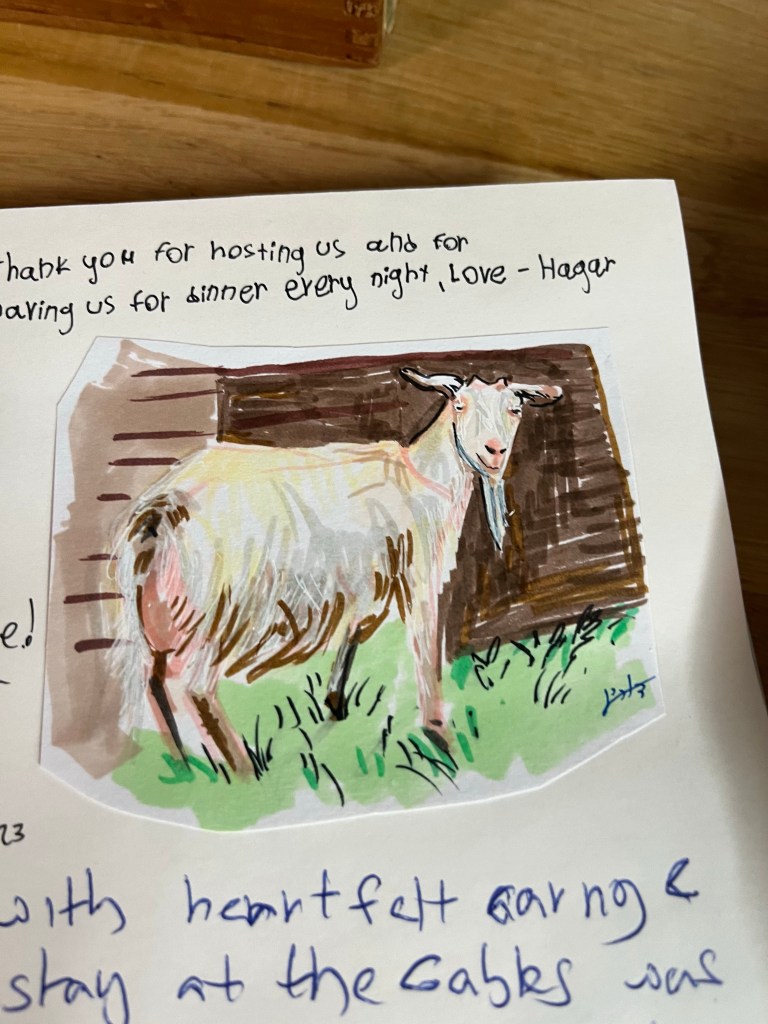 Thank you for hosting us and for
having us for dinner every night, Love - Hagar
e!
23
with heartfelt caring &
stay at the Gables was